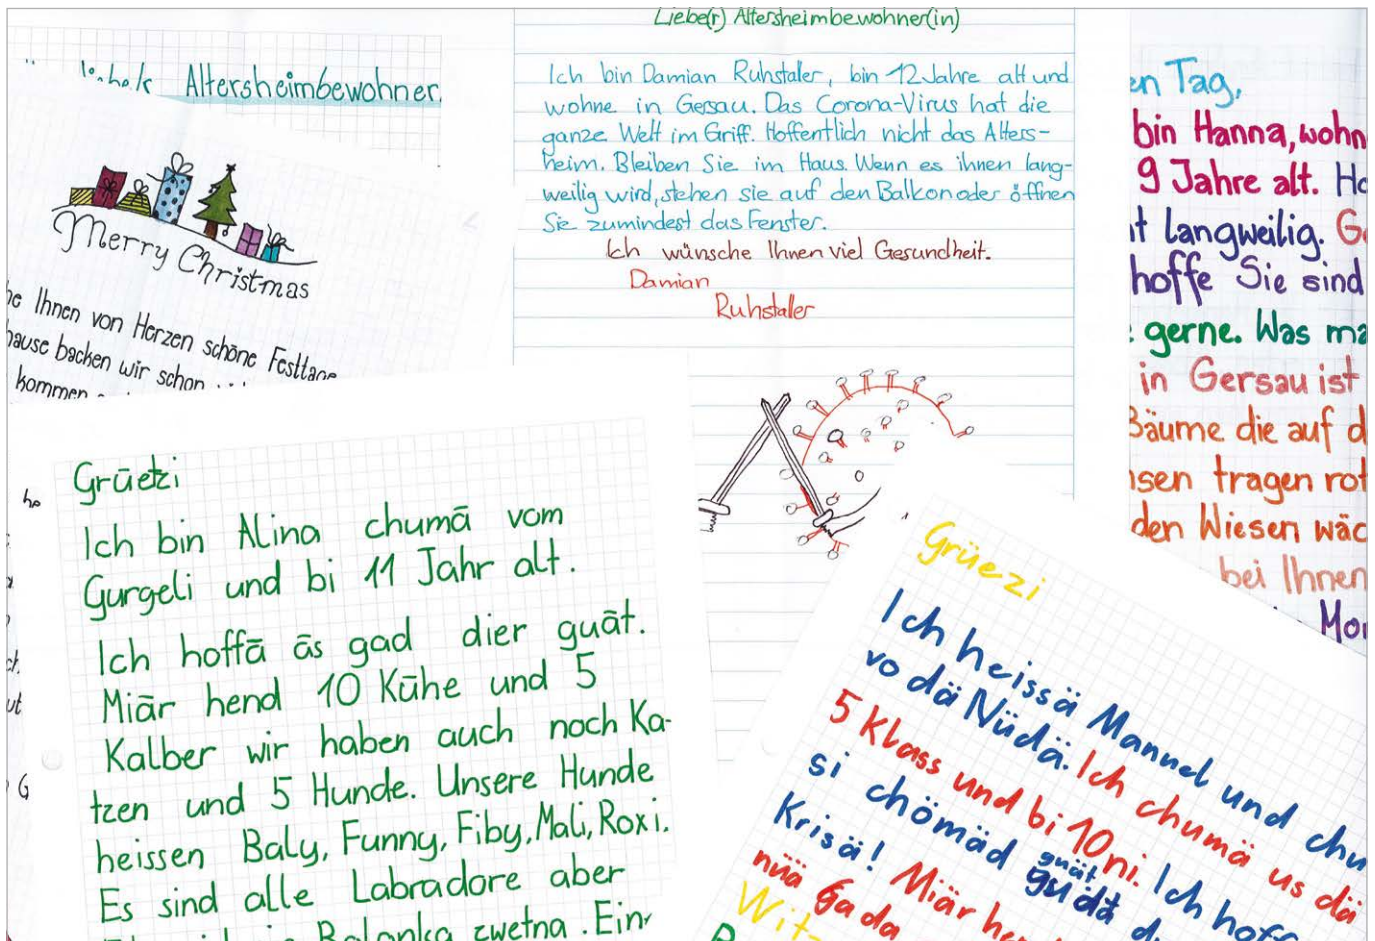 Altersheimbewohner
Merry Christmas
Ihnen von Herzen schöne Festtage
backen wir schon
kommen
Liebe(r) Altersheimbewohner(in)
Ich bin Damian Ruhstaller, bin 12 Jahre alt und
wohne in Gersau. Das Corona-Virus hat die
ganze Welt im Griff. Hoffentlich nicht das Alters-
heim. Bleiben Sie im Haus. Wenn es ihnen lang-
weilig wird, stehen sie auf den Balkon oder öffnen
Sie zumindest das Fenster.
Ich wünsche Ihnen viel Gesundheit.
Damian
Ruhstaller
en Tag,
bin Hanna, wohn
9 Jahre alt. Ho
t langweilig. G
hoffe Sie sind
gerne. Was ma
in Gersau ist
Bäume die auf d
sen tragen rot
den Wiesen wäc
bei Ihnen
Mor
Grüetzi
Ich bin Alina chumä vom
Gurgeli und bi 11 Jahr alt.
Ich hoffä äs gad dier guät.
Miär hend 10 Kühe und 5
Kalber wir haben auch noch Ka-
tzen und 5 Hunde. Unsere Hunde
heissen Baly, Funny, Fiby, Mali, Roxi.
Es sind alle Labradore aber
Bolonka zwetna. Ein
Grüezi
Ich heissä Manuel und chu
vo dä Nüdä. Ich chumä us dä
5 Klass und bi 10ni. Ich hoff
si chömäd guät d
Krisä! Miär he
nüä gada
Witz